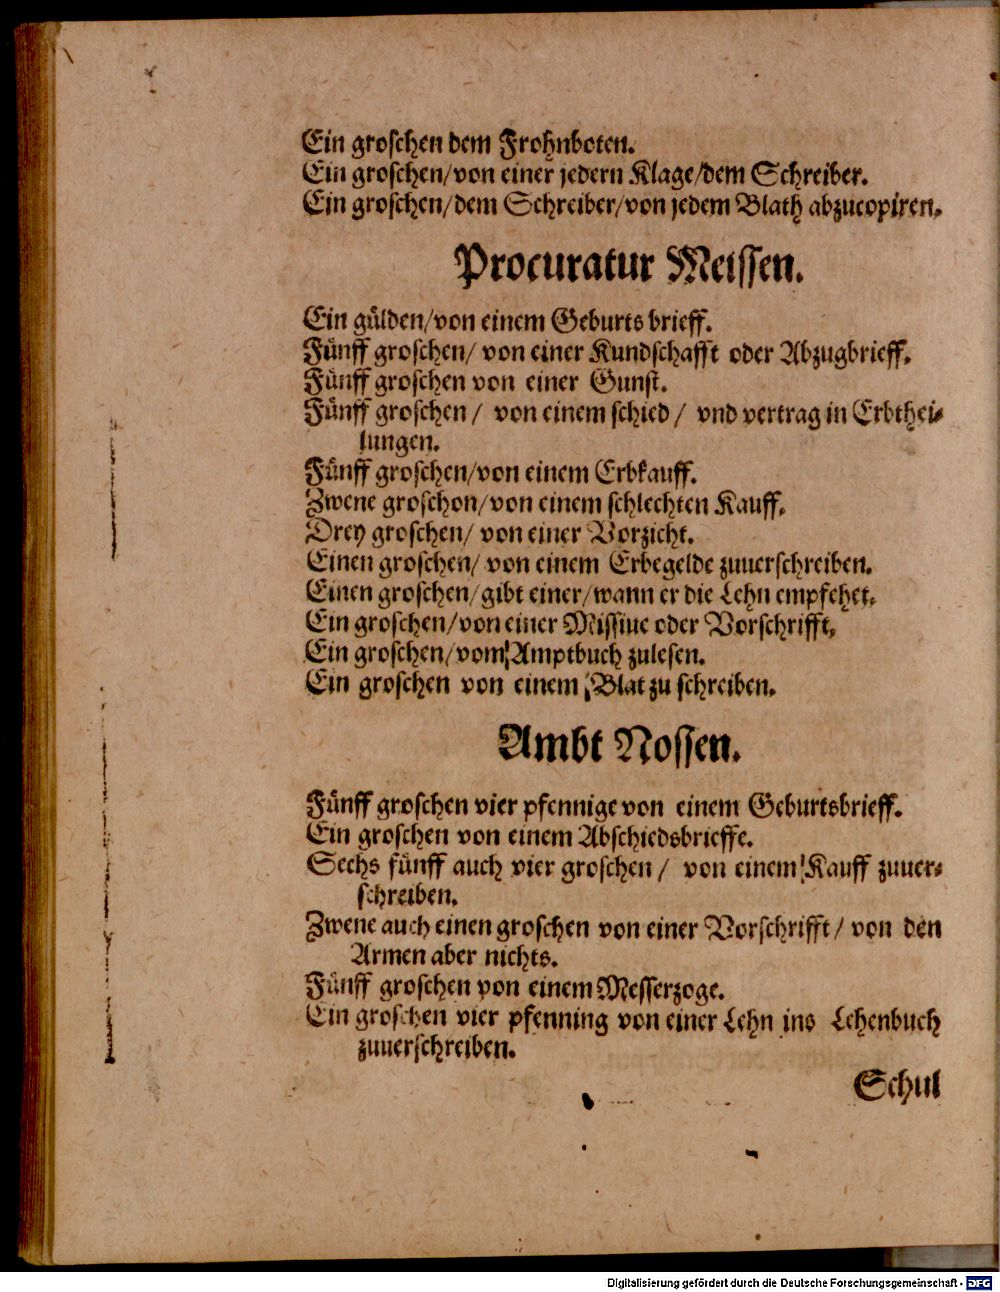 Ein groschen dem Frohnboten.
Ein groschen/von einer jedern Klage/dem Schreiber.
Ein groschen/dem Schreiber/von jedem Blath abzucopiren.
Procuratur Meissen.
Ein gülden/von einem Geburts brieff.
Fünff groschen/ von einer Kundschafft oder Abzugbrieff.
Fünff groschen von einer Gunst.
Fünff groschen / von einem schied / vnd vertrag in Erbthei⸗
lungen.
Fünff groschen/von einem Erbkauff.
Zwene groschon/von einem schlechten Kauff.
Drey groschen/ von einer Vorzicht.
Einen groschen/ von einem Erbegelde zuuerschreiben.
Einen groschen/gibt einer/wann er die Lehn empfehet.
Ein groschen/von einer Missiue oder Vorschrifft.
Ein groschen/vom Amptbuch zulesen.
Ein groschen von einem Blat zu schreiben.
Ambt Nossen.
Fünff groschen vier pfennige von einem Geburtsbrieff.
Ein groschen von einem Abschiedsbrieffe.
Sechs fünff auch vier groschen / von einem Kauff zuuer⸗
schreiben.
Zwene auch einen groschen von einer Vorschrifft / von den
Armen aber nichts.
Fünff groschen von einem Messerzoge.
Ein groschen vier pfenning von einer Lehn ins Lehenbuch
zuuerschreiben.
Schul
Digitalisierung gefördert durch die Deutsche Forschungsgemeinschaft - DFG